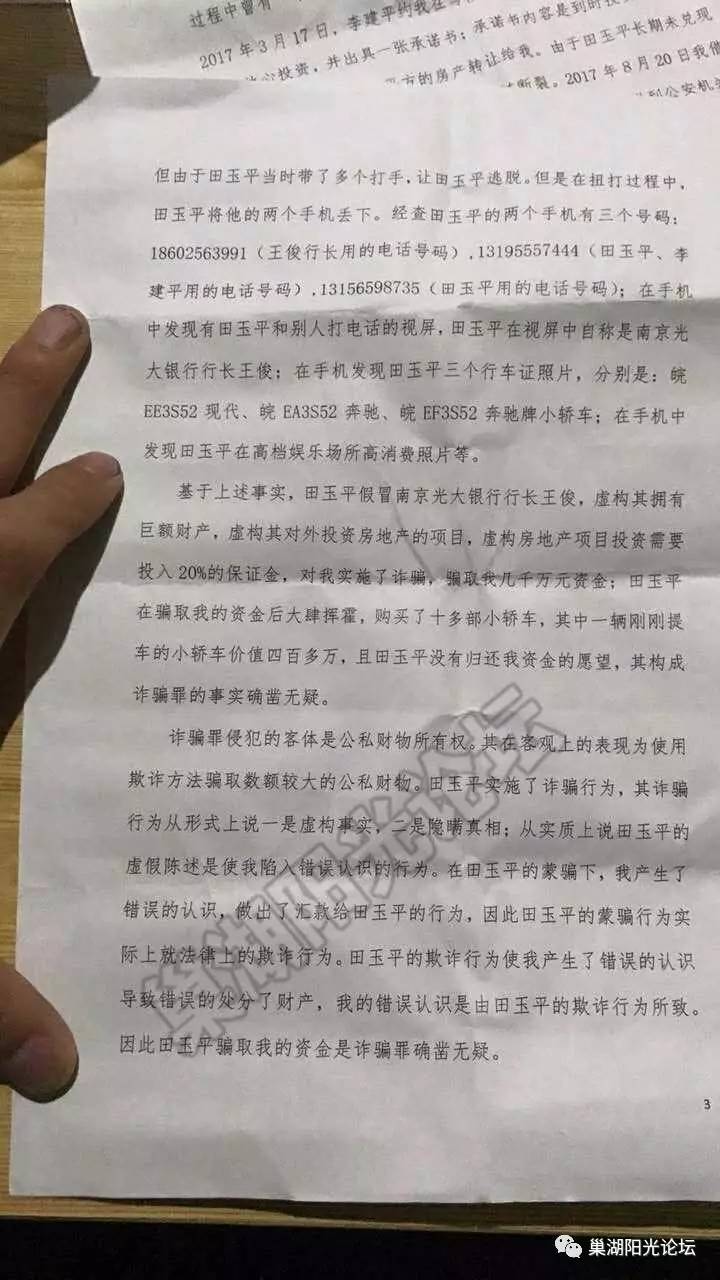 过程中曾有
2017年3月17日,李建平约我在
心投资,并出具一张承诺书;承诺书内容是到时
方的房产转让给我。由于田玉平长期未兑现
断裂。2017年8月20日我
到公安机
但由于田玉平当时带了多个打手,让田玉平逃脱。但是在扭打过程中,
田玉平将他的两个手机丢下。经查田玉平的两个手机有三个号码:
18602563991(王俊行长用的电话号码),13195557444(田玉平、李
建平用的电话号码),13156598735(田玉平用的电话号码);在手机
中发现有田玉平和别人打电话的视屏,田玉平在视屏中自称是南京光
大银行行长王俊;在手机发现田玉平三个行车证照片,分别是:皖
EE3S52现代、皖EA3S52奔驰、皖EF3S52奔驰牌小轿车;在手机中
发现田玉平在高档娱乐场所高消费照片等。
基于上述事实,田玉平假冒南京光大银行行长王俊,虚构其拥有
巨额财产,虚构其对外投资房地产的项目,虚构房地产项目投资需要
投入20%的保证金,对我实施了诈骗,骗取我几千万元资金;田玉平
在骗取我的资金后大肆挥霍,购买了十多部小轿车,其中一辆刚刚提
车的小轿车价值四百多万,且田玉平没有归还我资金的愿望,其构成
诈骗罪的事实确凿无疑。
诈骗罪侵犯的客体是公私财物所有权。其在客观上的表现为使用
欺诈方法骗取数额较大的公私财物。田玉平实施了诈骗行为,其诈骗
行为从形式上说一是虚构事实,二是隐瞒真相;从实质上说田玉平的
虚假陈述是使我陷入错误认识的行为。在田玉平的蒙骗下,我产生了
错误的认识,做出了汇款给田玉平的行为,因此田玉平的蒙骗行为实
际上就法律上的欺诈行为。田玉平的欺诈行为使我产生了错误的认识
导致错误的处分了财产,我的错误认识是由田玉平的欺诈行为所致。
因此田玉平骗取我的资金是诈骗罪确凿无疑。
3
巢湖阳光论坛
巢湖阳光论坛